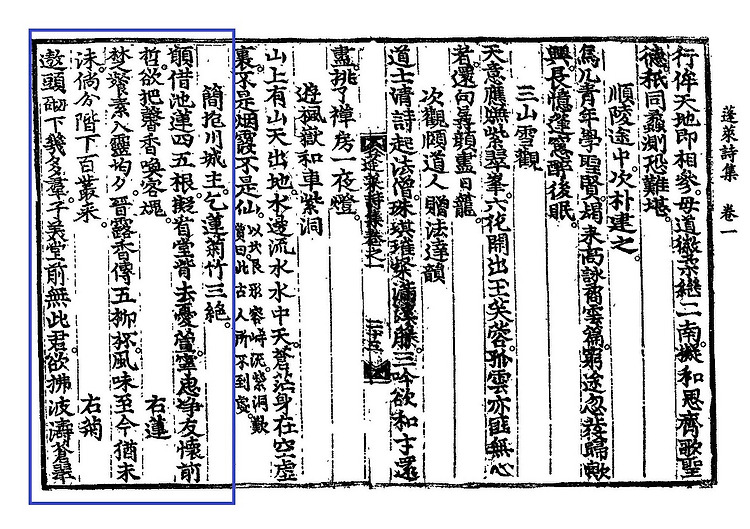 蓬萊詩集 卷一
行侔天地即相參。毋道徽柔繼二南。擬和恩齊歌聖
德。秪同蠡測恐難堪。
順陵途中。次朴建之
爲儿青年學聖賢。媚來高詠裔雲篇。窮途忽發歸歟
興。長憶蓬窓醉後眠。
三山雪觀
天意應嫌紫翠峯。六花開出玉芙蓉。孤雲亦自無心
者。還向尋顔盡日龍。
次觀頤道人贈法達韻
道士淸詩起法僧。珠璣璀璨滿溪藤。三吟欲和才還
盡。挑了禪房一夜燈。
蓬萊詩集卷之一
遊楓嶽和車紫洞
山上有山天出地。水邊流水水中天。蒼茫身在空虛
裏。不是烟霞不是仙。
簡抱川城主。乞蓮菊竹三絶。
願借池蓮四五根。擬看堂背去憂萱。寧忠爭友懷前
哲。欲把馨香喚客魂。 右蓮
楚餐素入靈均夕。晉露香傳五柳杯。風味至今猶未
沫。倘分階下百叢來。 右菊
遨頭砌下幾多羣。子美堂前無此君。欲拂波濤蒼翠